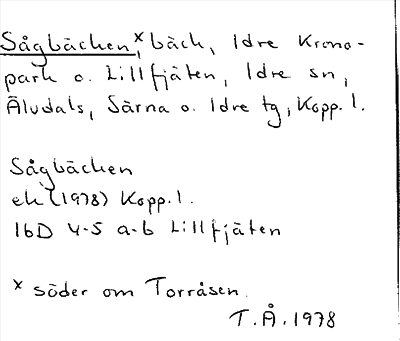 Sågbäcken,ˣ bäck, Idre Krono-
park o. Lillfjäten, Idre sn,
Älvdals, Särna o. Idre tg, Kopp. l.
Sågbäcken
ek (1978) Kopp. l.
16D 4-5 a-b Lillfjäten
ˣ söder om Torråsen.
T.Å. 1978